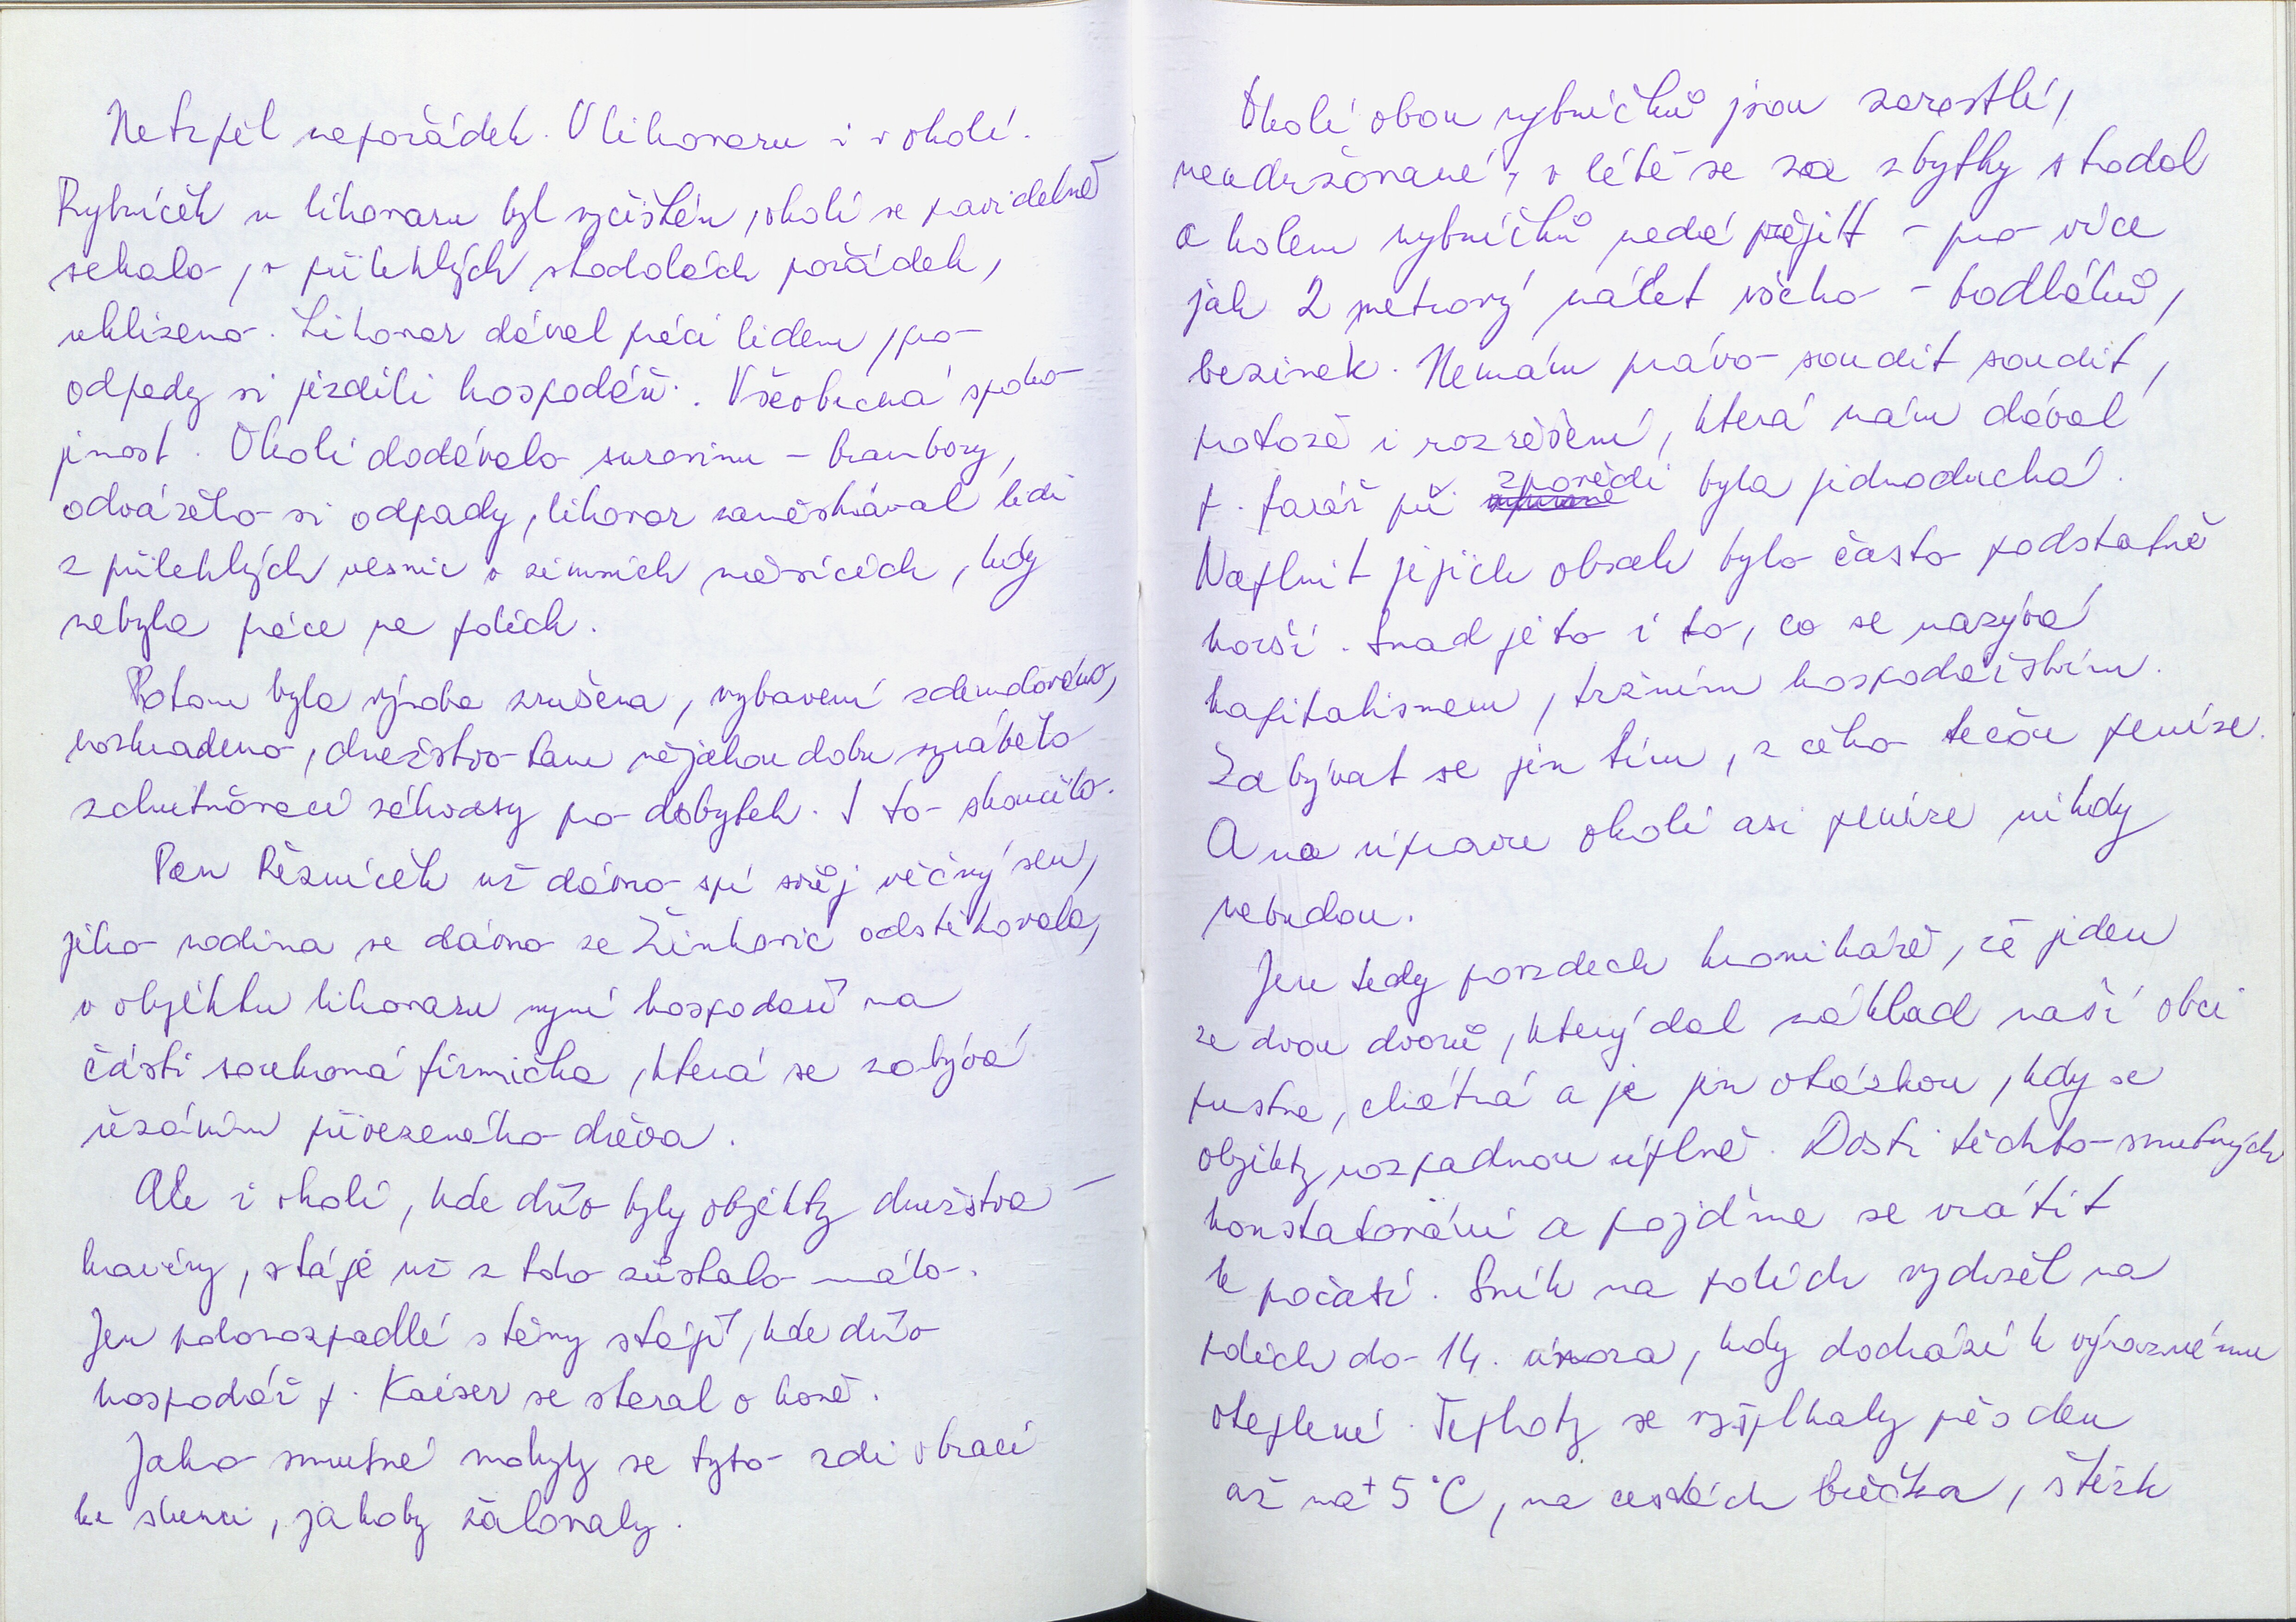 Netrpěl nepořádek. V lihovaru i v okolí.
Rybníček u lihovaru byl vyčištěn, okolí se pravidelně
sekalo, v přilehlých stodolách pořádek,
uklizeno. Lihovar dával práci lidem, pro
odpady si jezdili hospodáři. Všeobecná spoko-
jenost. Okolí dodávalo surovinu - brambory,
odváželo si odpady, lihovar zaměstnával lidi
z přilehlých vesnic v zimních měsících, kdy
nebyla práce na polích.
Potom byla výroba zrušena, vybavení zdemolováno,
rozkradeno, družstvo tam nějakou dobu vyrábělo
zchutňovací zákvasy pro dobytek. I to skončilo.
Pan Řezníček už dávno spí svůj věčný sen,
jeho rodina se dávno ze Žinkovic odstěhovala,
v objektu lihovaru nyní hospodaří na
části soukromá firmička, která se zabývá
řezáním přivezeného dřeva.
Ale i okolí, kde dřív byly objekty družstva -
kravíny, stáje už z toho zůstalo málo.
Jen polorozpadlé stěny stájí, kde dřív
hospodář p. Kaiser se staral o koně.
Jako smutné mohyly se tyto zdi obrací
ke slunci, jakoby žalovaly.
Okolí obou rybníčků jsou zarostlé,
neudržované, v létě se za zbytky stodol
a kolem rybníčků nedá přejít - pro více
jak 2 metrový nálet všeho - bodláků,
bezinek. Nemám právo soudit soudit,
protože i rozřešení, která nám dával
p. farář při zpovědi byla jednoduchá.
Naplnit jejich obsah bylo často podstatně
horší. Snad je to i to, co se nazývá
kapitalismem, tržním hospodářstvím.
Zabývat se jen tím, z čeho tečou peníze.
A na úpravu okolí asi peníze nikdy
nebudou.
Jen tedy povzdech kronikáře, že jeden
ze dvou dvorů, který dal základ naší obci
pustne, chátrá a je jen otázkou, kdy se
objekty rozpadnou úplně. Dosti těchto smutných
konstatování a pojďme se vrátit
k počasí. Sníh na polích vydržel na
polích do 14. února, kdy dochází k výraznému
oteplení. Teploty se vyšplhaly přes den
až na +5 °C, na cestách břečka, štěrk